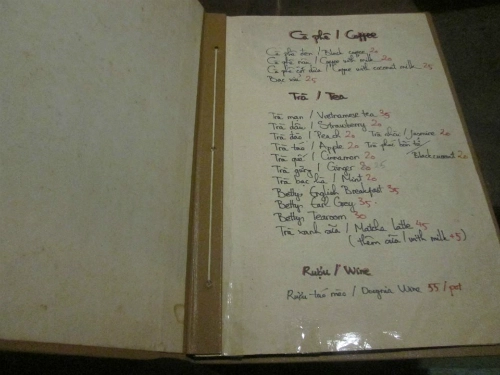 Cà phê / Coffee
Cà phê đen / Black coffee 20
Cà phê nâu / Coffee with milk 20
Cà phê cốt dừa / Coffee with coconut milk 25
Bạc xỉu 25
Trà / Tea
Trà mạn / Vietnamese tea 35
Trà dâu / Strawberry 20
Trà đào / Peach 20 Trà nhài / Jasmine 20
Trà táo / Apple 20 Trà phúc bồn tử /
Trà quế / Cinnamon 20 Blackcurrant 20
Trà gừng / Ginger 20
Trà bạc hà / Mint 20
Bettys English Breakfast 35
Bettys Earl Grey 35
Bettys Tearoom 30
Trà xanh sữa / Matcha Latte 45
(thêm sữa / with milk +5)
Rượu / Wine
Rượu táo mèo / Wine 55 /pot